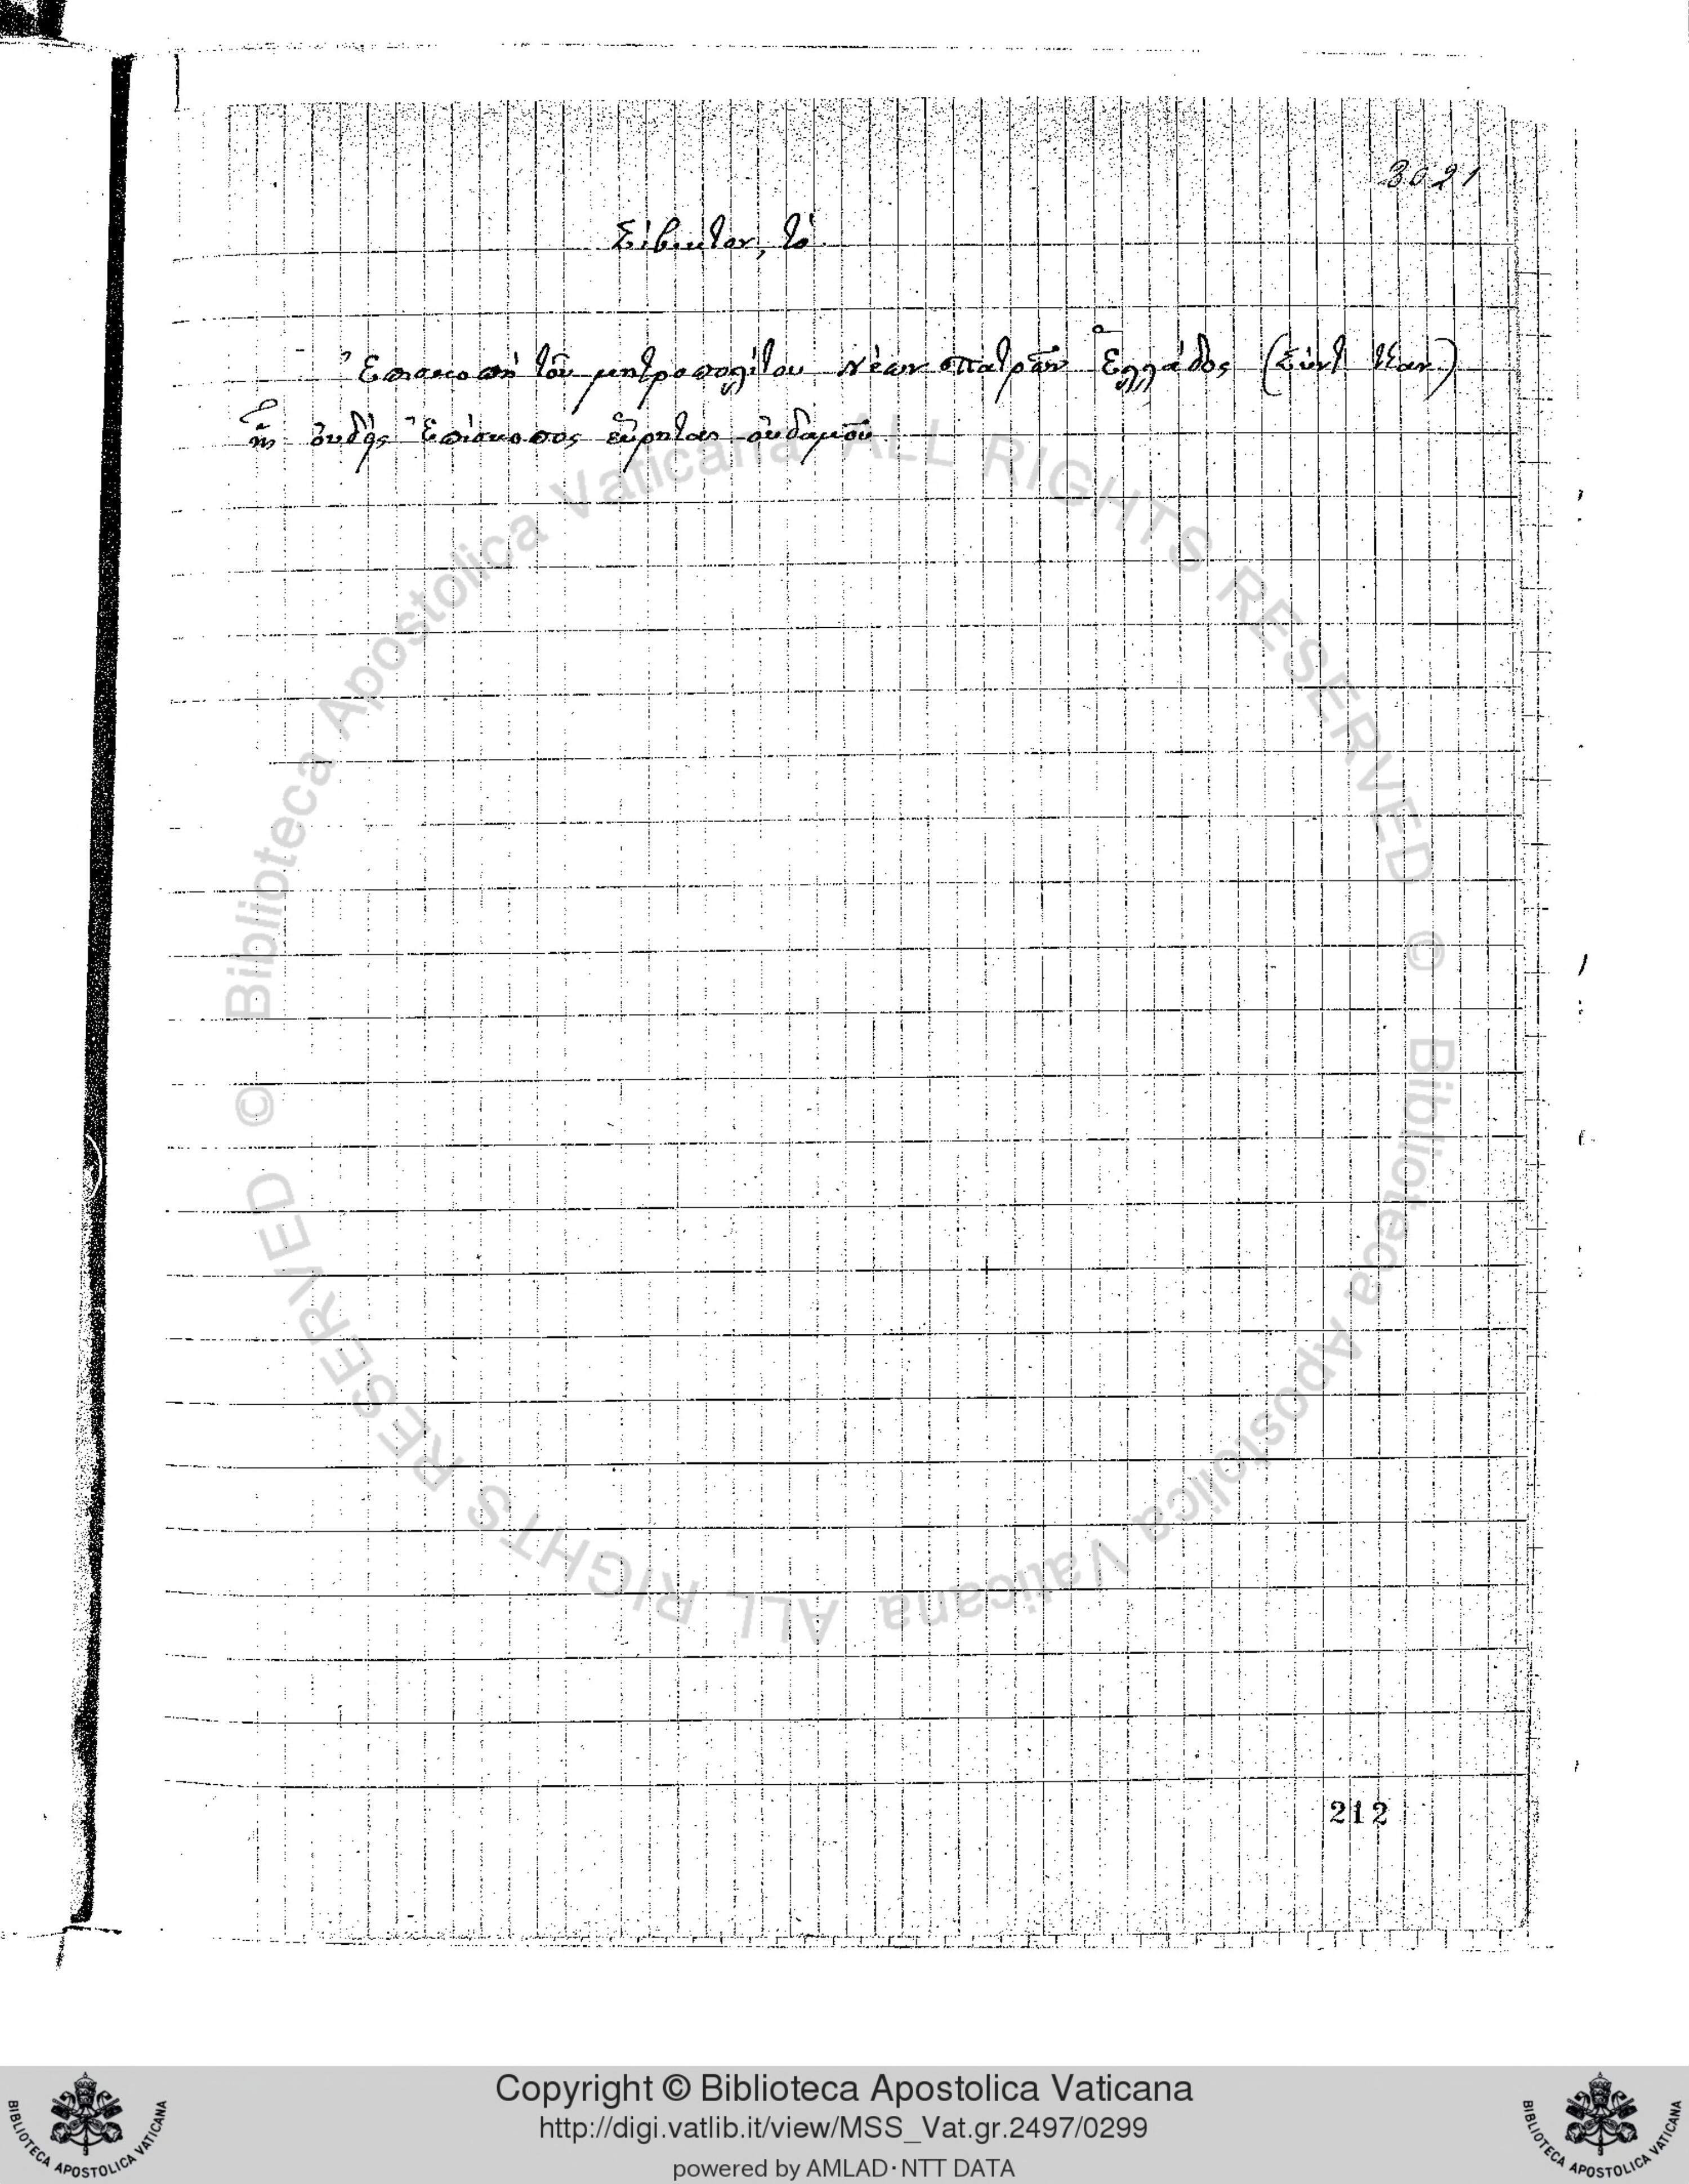 3021
Σίβικτον, τὸ
Ἐπισκοπὴ τοῦ μητροπολίτου Νέων Πατρῶν Ἑλλάδος (Σύντ Νέαν)
ἧς οὐδεὶς Ἐπίσκοπος εὕρηται οὐδαμοῦ
© Biblioteca Apostolica Vaticana ALL RIGHTS RESERVED
© Biblioteca Apostolica Vaticana ALL RIGHTS RESERVED
212
BIBLIOTECA APOSTOLICA VATICANA
Copyright © Biblioteca Apostolica Vaticana
http://digi.vatlib.it/view/MSS_Vat.gr.2497/0299
powered by AMLAD·NTT DATA
BIBLIOTECA APOSTOLICA VATICANA